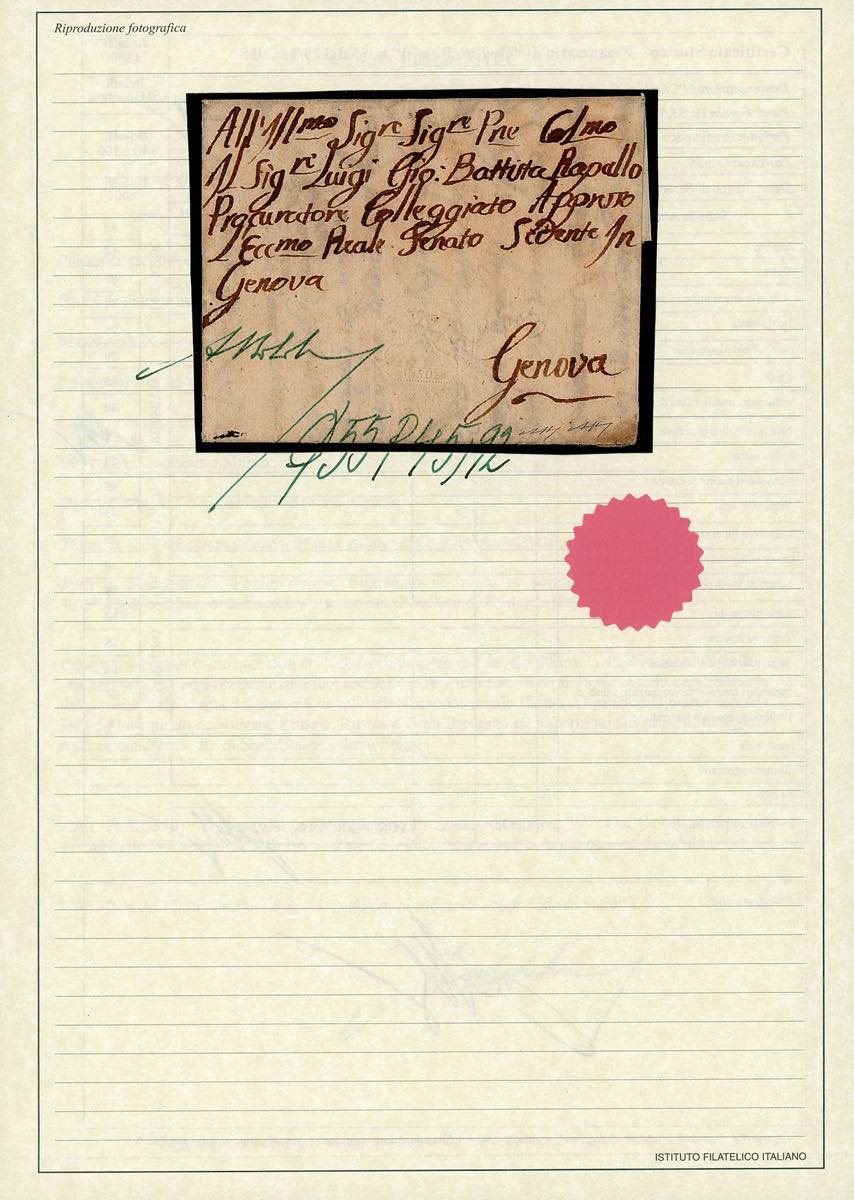 Riproduzione fotografica
All'Illmo Sigre Sigre Pne Colmo
Il Sigre Luigi Gio: Battista Rapallo
Procuratore Colleggiato Appresso
L'Eccmo Reale Senato Sedente In
Genova
Genova
955 P 45,92
ISTITUTO FILATELICO ITALIANO